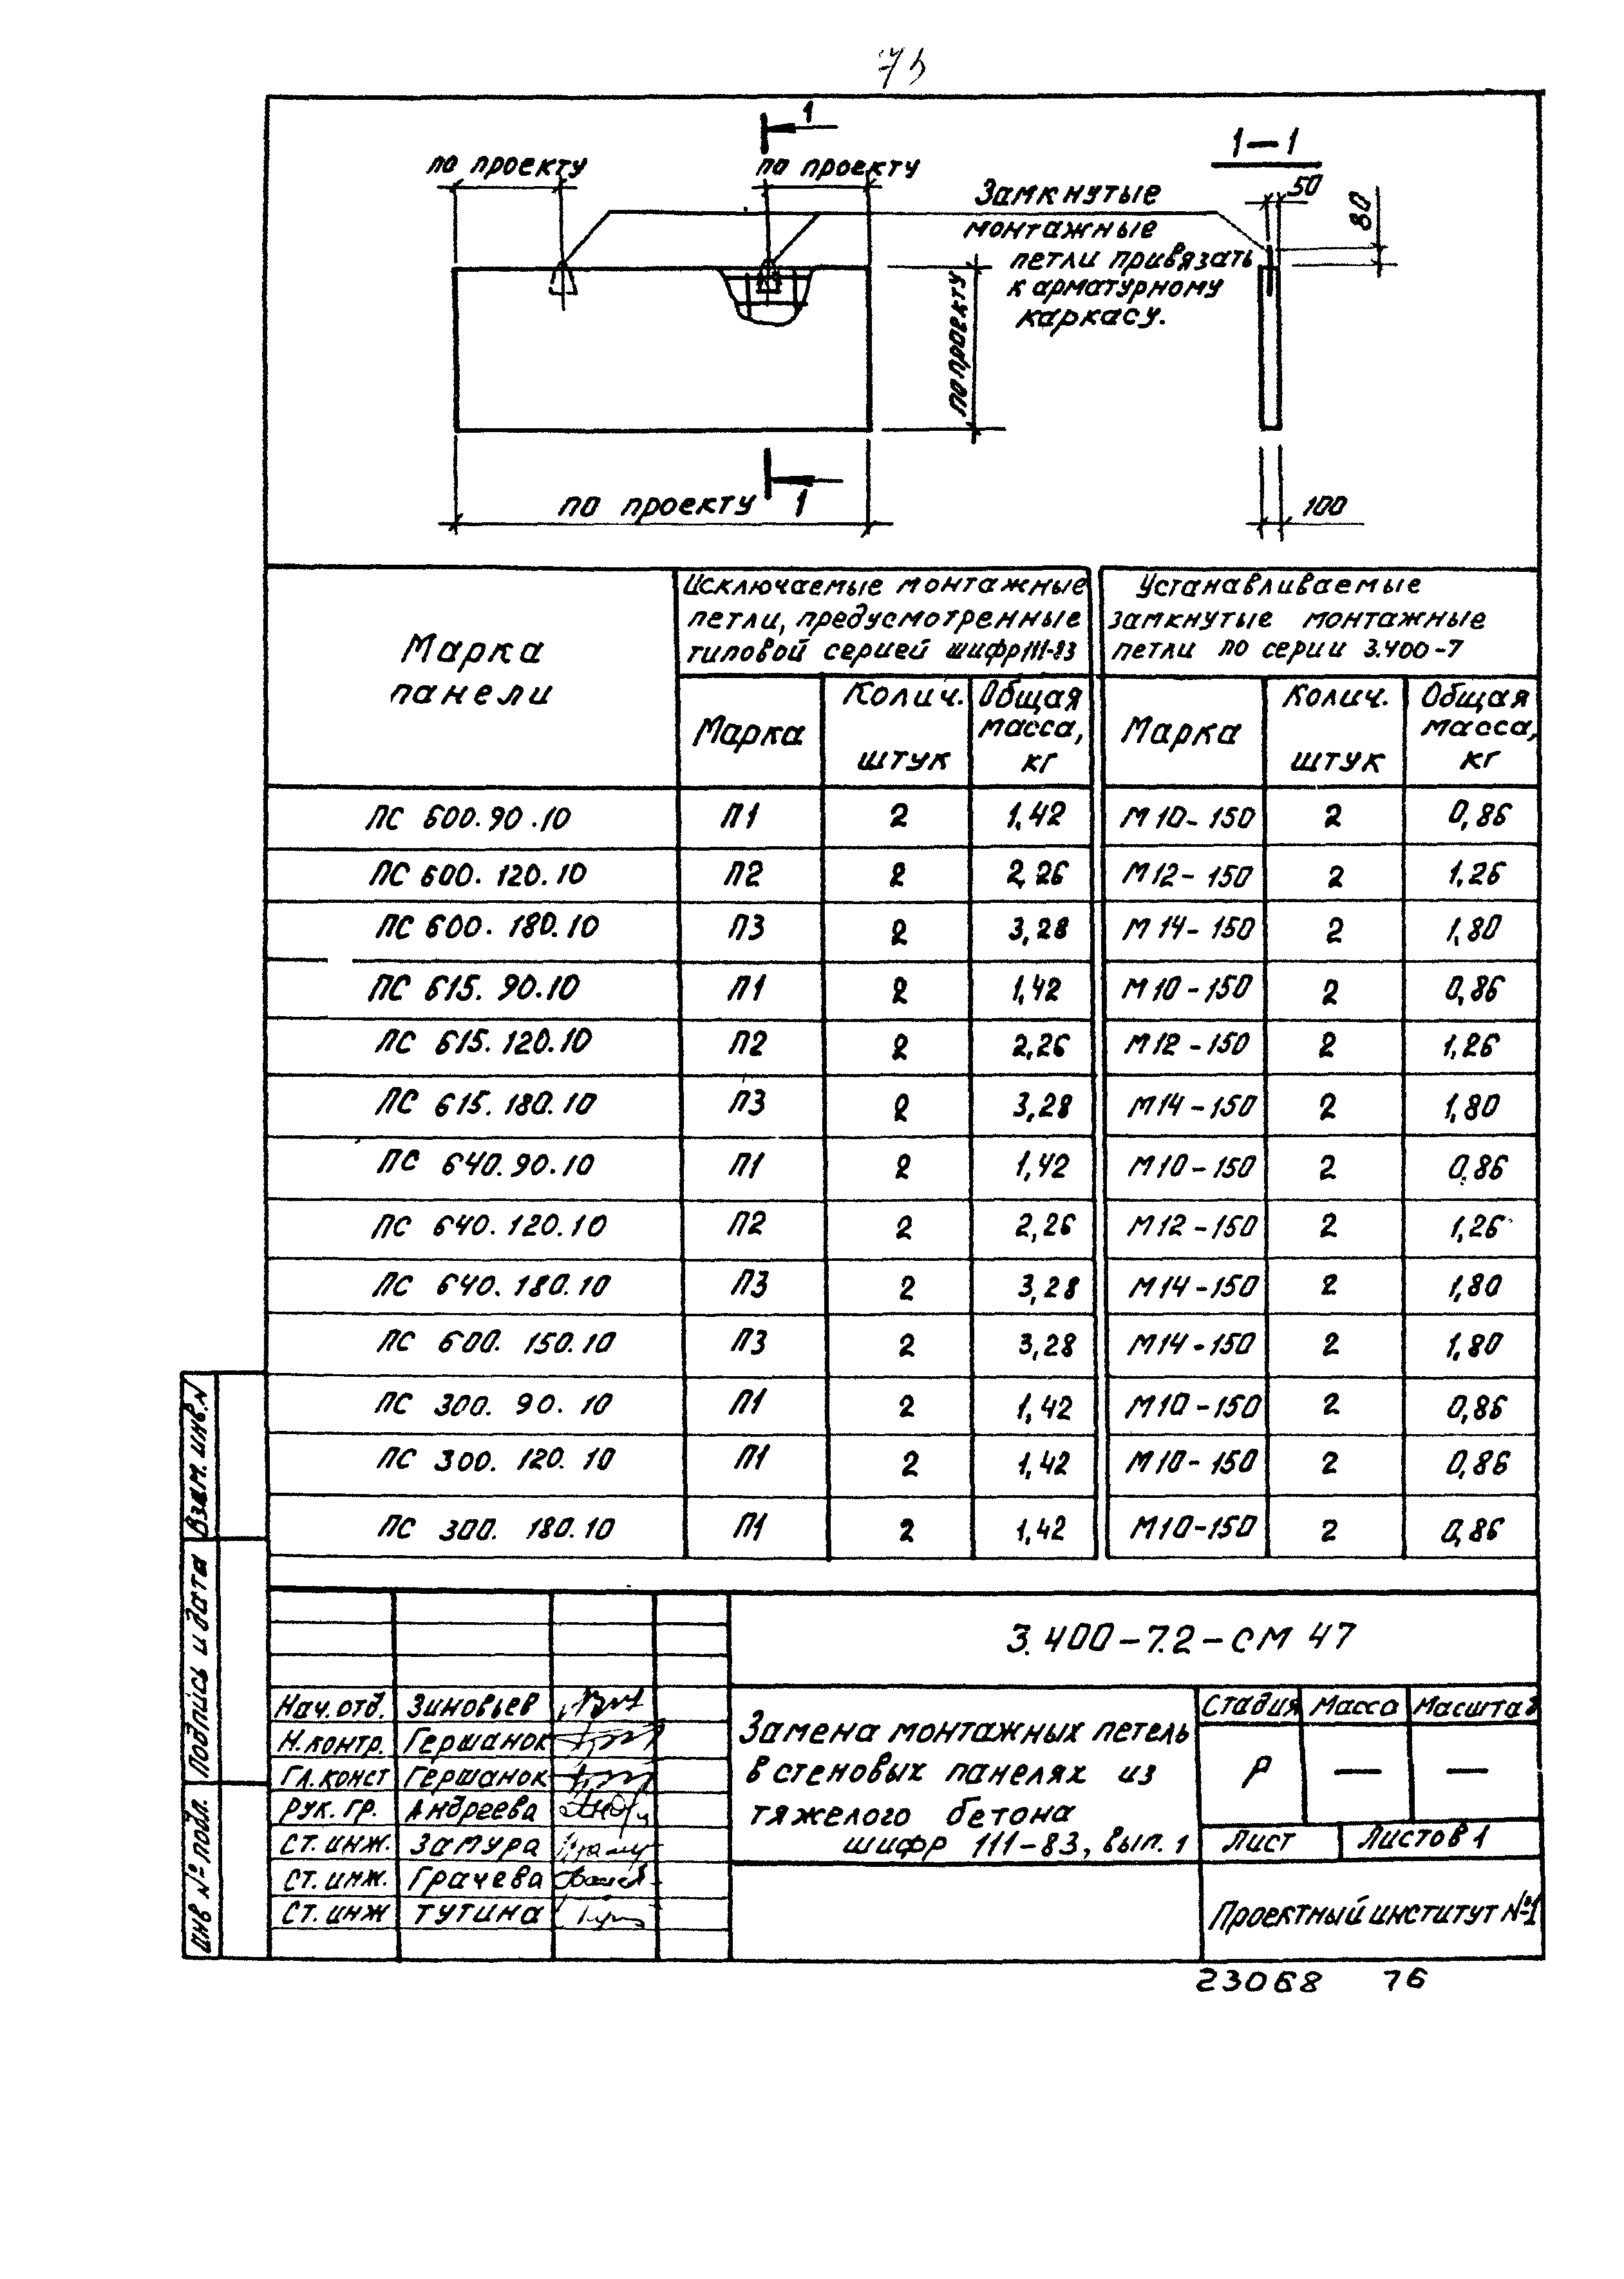 75
1
1–1
по проекту
по проекту
50
80
Замкнутые
монтажные
петли привязать
к арматурному
каркасу.
по проекту
по проекту
1
100
Марка
панели
Исключаемые монтажные
петли, предусмотренные
типовой серией шифр 111-83
Устанавливаемые
замкнутые монтажные
петли по серии 3.400-7
Марка
Колич.
штук
Общая
масса,
кг
Марка
Колич.
штук
Общая
масса,
кг
ПС 600.90.10 П1 2 1,42 М10-150 2 0,86
ПС 600.120.10 П2 2 2,26 М12-150 2 1,26
ПС 600.180.10 П3 2 3,28 М14-150 2 1,80
ПС 615.90.10 П1 2 1,42 М10-150 2 0,86
ПС 615.120.10 П2 2 2,26 М12-150 2 1,26
ПС 615.180.10 П3 2 3,28 М14-150 2 1,80
ПС 640.90.10 П1 2 1,42 М10-150 2 0,86
ПС 640.120.10 П2 2 2,26 М12-150 2 1,26
ПС 640.180.10 П3 2 3,28 М14-150 2 1,80
ПС 600.150.10 П3 2 3,28 М14-150 2 1,80
ПС 300.90.10 П1 2 1,42 М10-150 2 0,86
ПС 300.120.10 П1 2 1,42 М10-150 2 0,86
ПС 300.180.10 П1 2 1,42 М10-150 2 0,86
Взам. инв. №
Подпись и дата
инв № подл.
3.400-7.2-СМ 47
Нач. отд. Зиновьев
Н. контр. Гершанок
Гл. конст Гершанок
Рук. гр. Андреева
Ст. инж. Замура
Ст. инж. Грачева
Ст. инж Тутина
Замена монтажных петель
в стеновых панелях из
тяжелого бетона
шифр 111-83, вып. 1
Стадия Масса Масштаб
Р — —
Лист Листов 1
Проектный институт №1
23068 76